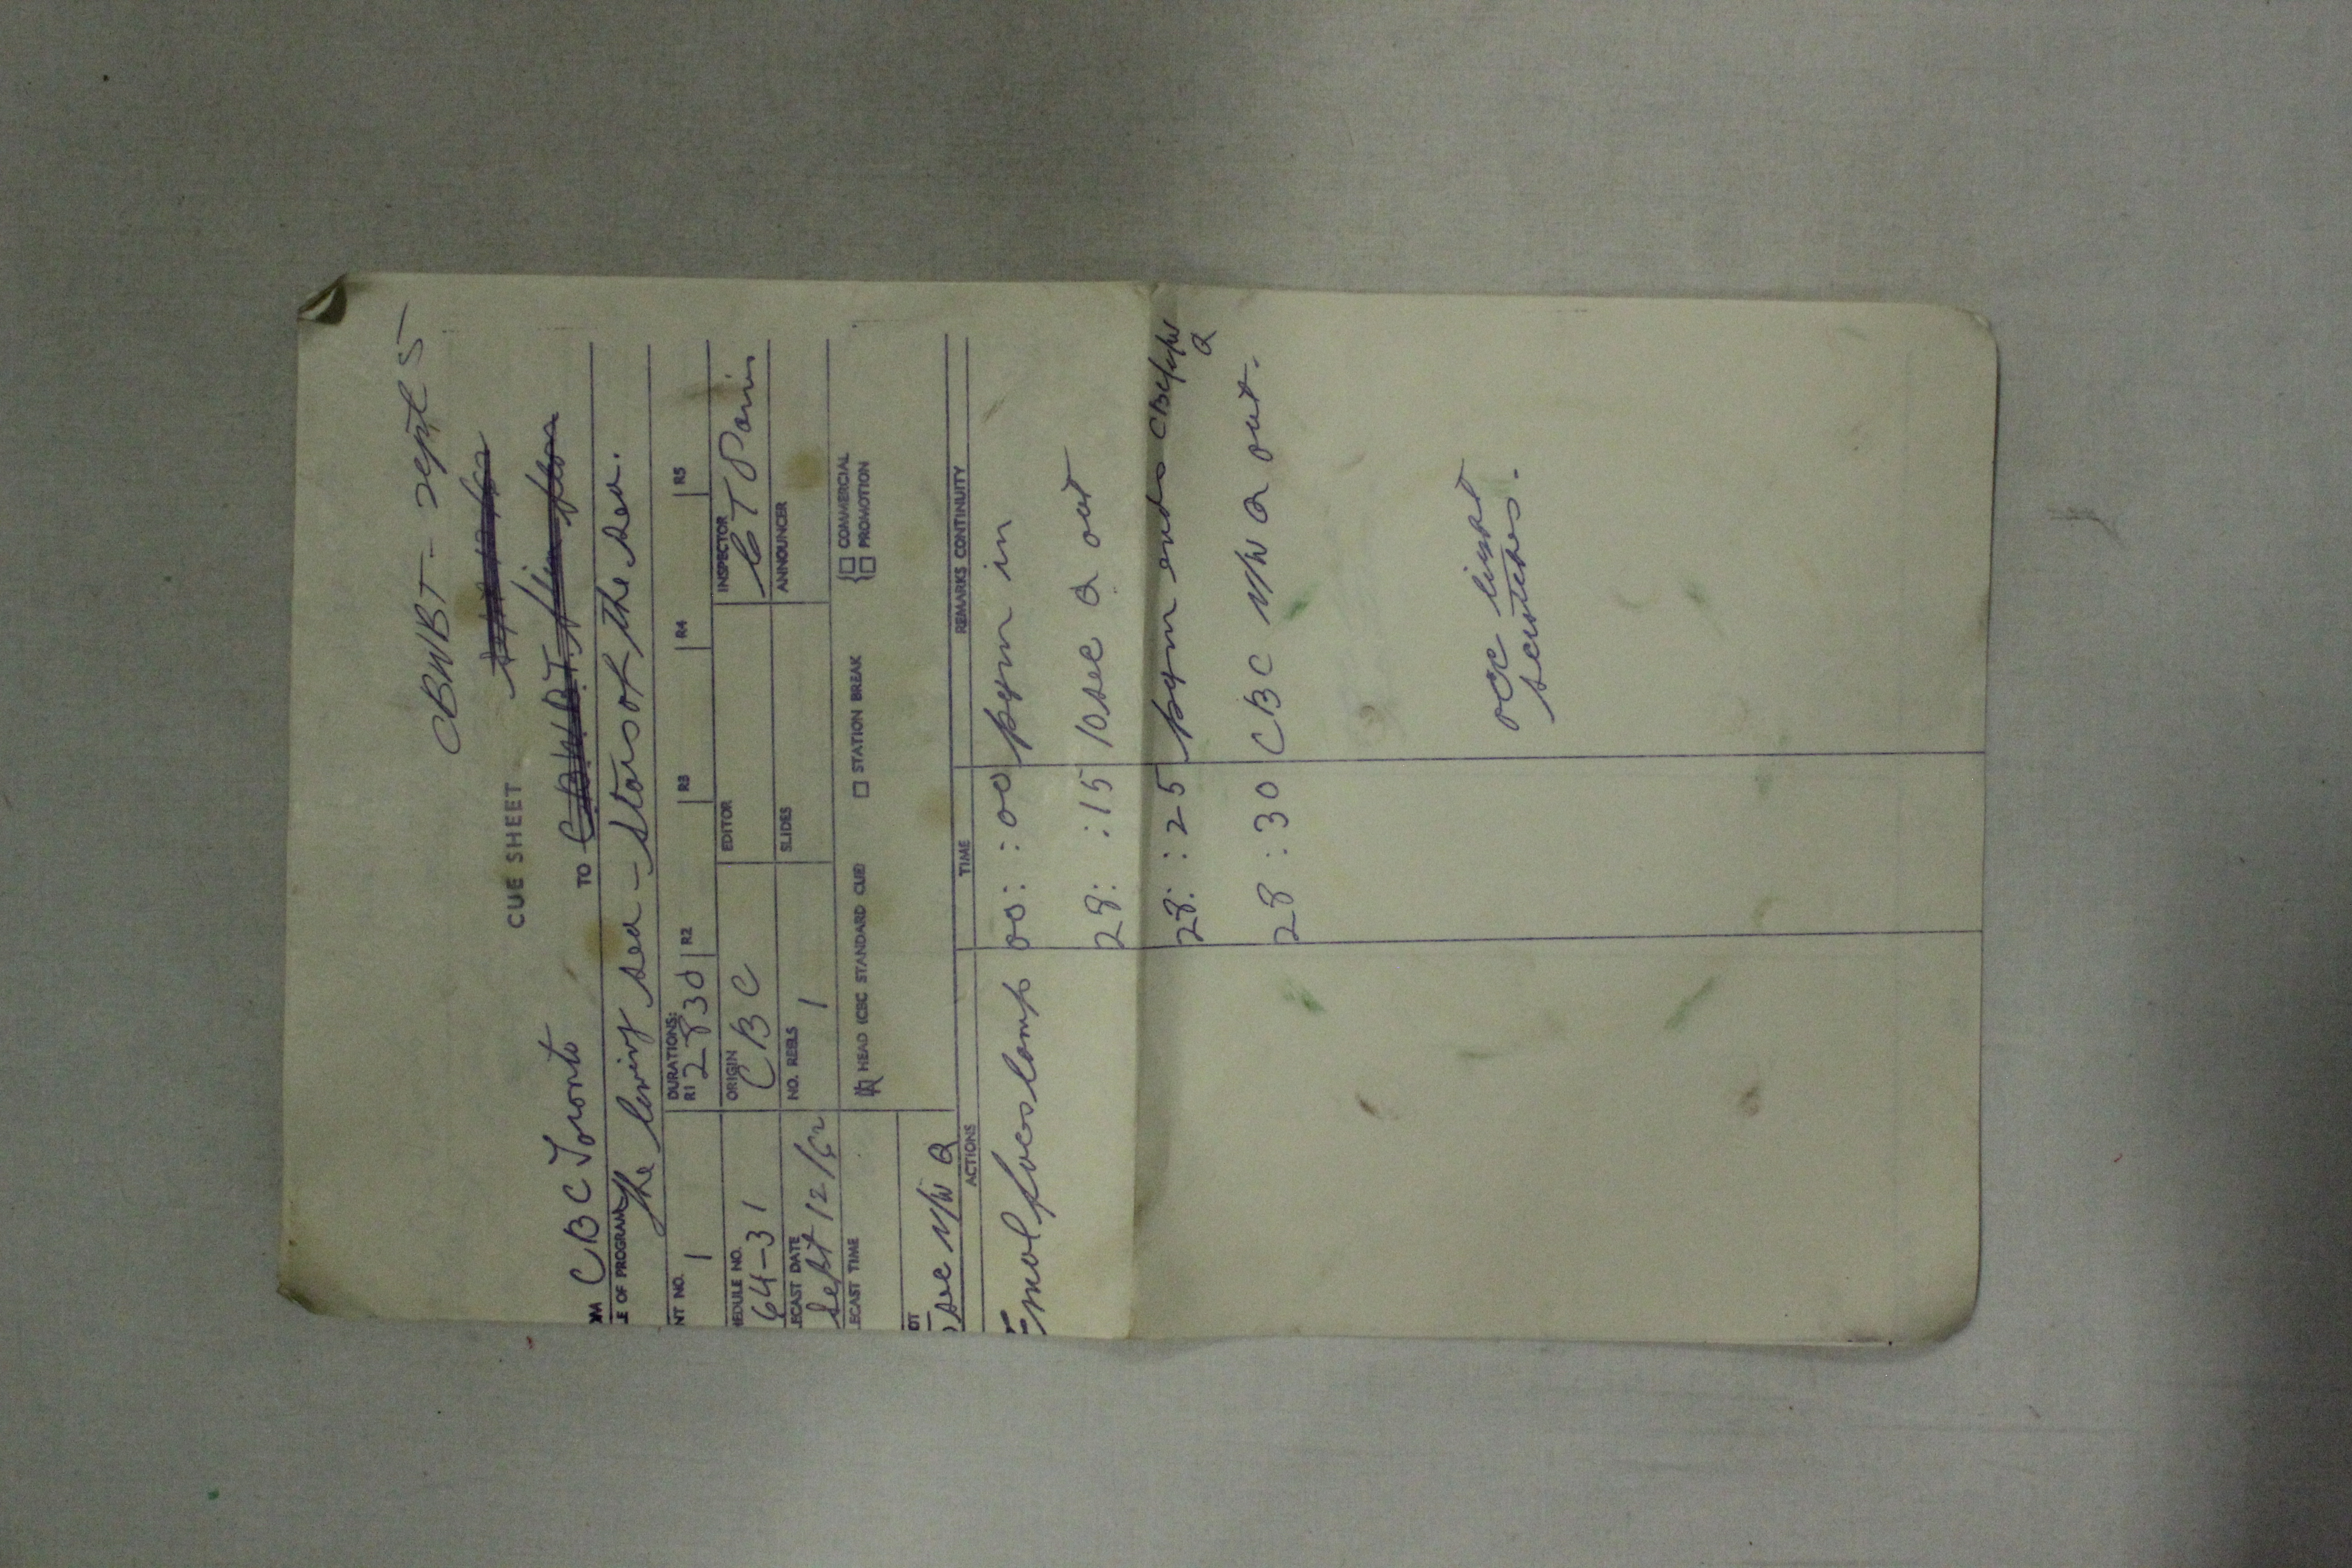 CBWBT - Sept 5
CUE SHEET
OM CBC Toronto TO CBWBT
E OF PROGRAM The living sea - Stars of the sea.
NT NO. 1 DURATIONS: R1 28 30 R2 R3 R4 R5
HEDULE NO. 64-31 ORIGIN CBC EDITOR INSPECTOR
ECAST DATE Sept 12/62 NO. REELS 1 SLIDES ANNOUNCER
ECAST TIME HEAD (CBC STANDARD CUE) STATION BREAK COMMERCIAL
PROMOTION
OT
sec V/W Q
ACTIONS TIME REMARKS CONTINUITY
00: :00 pgm in
28: :15 10 sec Q out
28: :25 pgm ends CBC V/W
Q
28 :30 CBC V/W Q out.
occ
scratches.